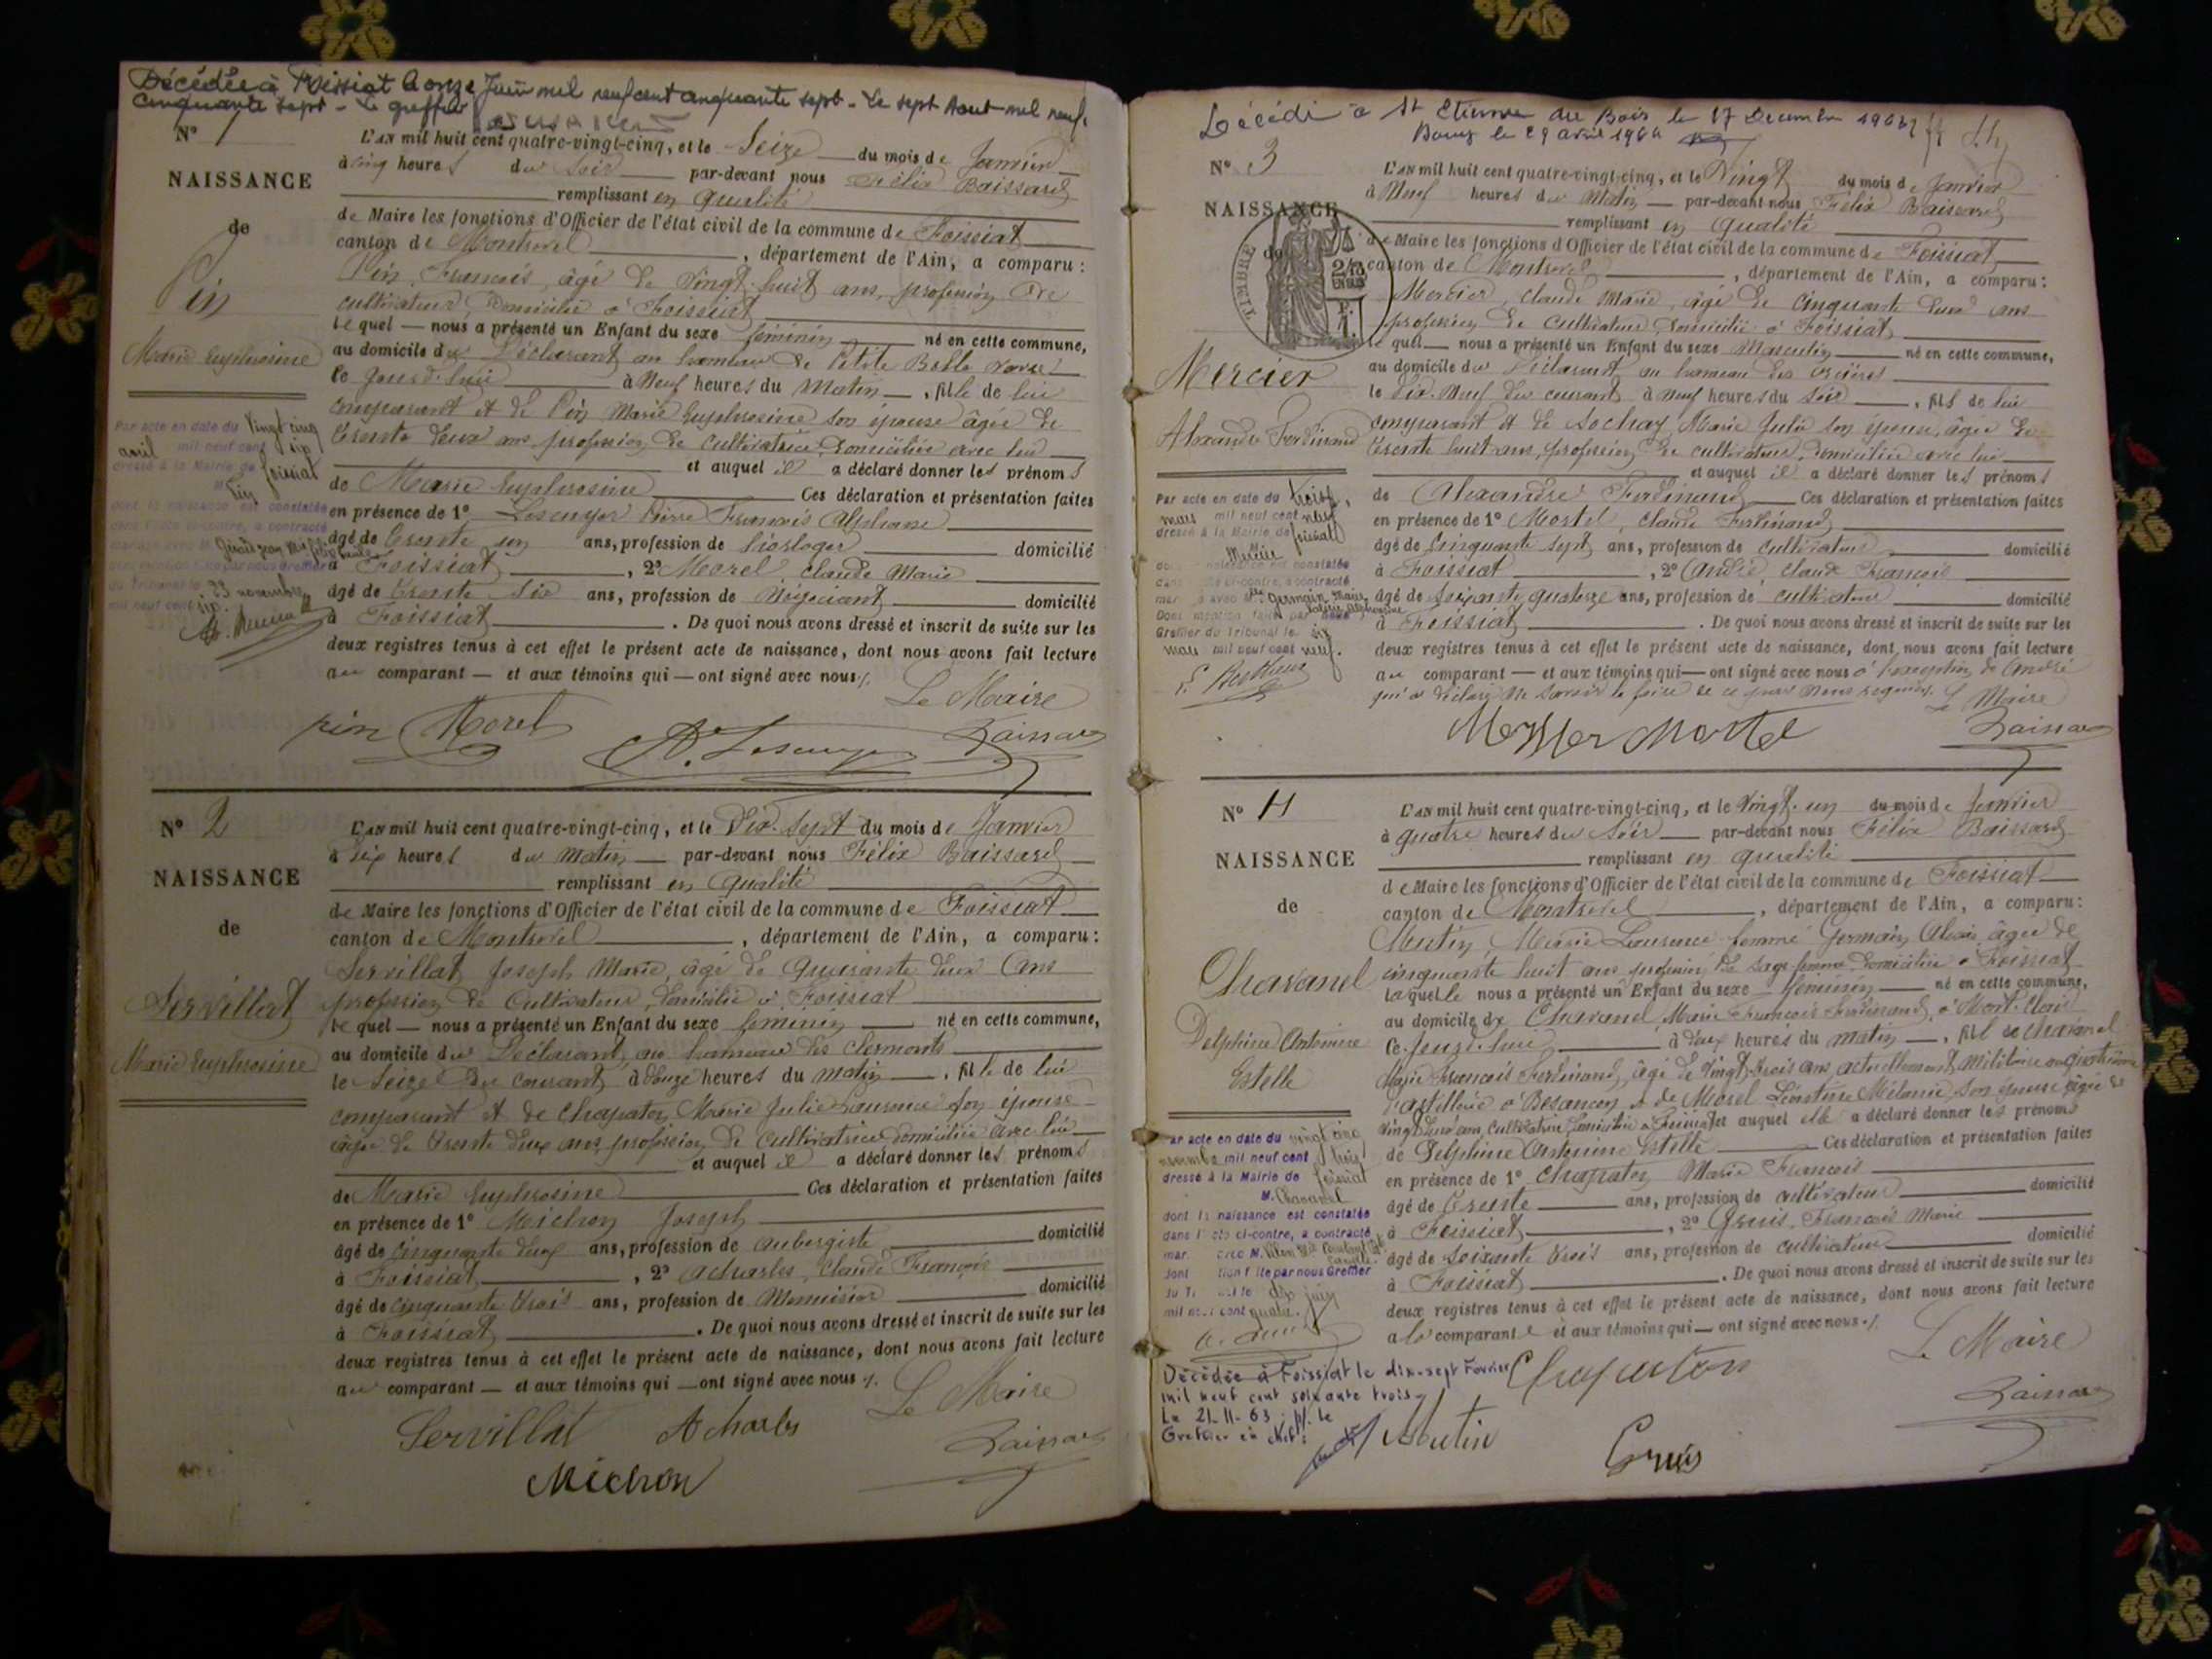 Décédée à Foissiat le onze Juin mil neuf cent cinquante sept - Le sept Aout mil neuf
cinquante sept - Le greffier
N° 1
NAISSANCE
de
Pin
Marie Euphrosine
Par acte en date du Vingt cinq
avril mil neuf cent six
dressé à la Mairie de foissiat
M Pin
dont la naissance est constatée
dans l'acte ci-contre, a contracté
mariage avec M.
du Tribunal le 23 novembre
mil neuf cent six.
L'AN mil huit cent quatre-vingt-cinq, et le Seize du mois de Janvier
à cinq heures du Soir par-devant nous Félix Baissard
remplissant en qualité
de Maire les fonctions d'Officier de l'état civil de la commune de Foissiat
canton de Montrevel, département de l'Ain, a comparu :
Pin, François, âgé de Vingt-huit ans, profession de
cultivateur, domicilié à Foissiat
lequel nous a présenté un Enfant du sexe féminin né en cette commune,
au domicile du Déclarant, au hameau de Petite
ce jourd'hui à Neuf heures du Matin, fille de lui
comparant et de Pin Marie Euphrosine son épouse âgée de
trente deux ans profession de cultivatrice domiciliée avec lui
et auquel il a déclaré donner les prénoms
de Marie Euphrosine Ces déclaration et présentation faites
en présence de 1° Lescuyer Pierre François Alphonse
âgé de trente un ans, profession de horloger domicilié
à Foissiat, 2° Morel Claude Marie
âgé de trente six ans, profession de Négociant domicilié
à Foissiat. De quoi nous avons dressé et inscrit de suite sur les
deux registres tenus à cet effet le présent acte de naissance, dont nous avons fait lecture
au comparant et aux témoins qui ont signé avec nous ./.
Le Maire
pin Morel A. Lescuyer Baissard
N° 2
NAISSANCE
de
Servillat
Marie Euphrosine
L'AN mil huit cent quatre-vingt-cinq, et le Dix-Sept du mois de Janvier
à six heures du matin par-devant nous Félix Baissard
remplissant en qualité
de Maire les fonctions d'Officier de l'état civil de la commune de Foissiat
canton de Montrevel, département de l'Ain, a comparu :
Servillat, Joseph Marie, âgé de Quarante deux ans
profession de Cultivateur, domicilié à Foissiat
lequel nous a présenté un Enfant du sexe féminin né en cette commune,
au domicile du Déclarant, au hameau des Clermonts
le Seize du courant, à onze heures du matin, fille de lui
comparant et de Chapaton Marie Julie Laurence son épouse
âgée de trente deux ans, profession de cultivatrice domiciliée avec lui
et auquel il a déclaré donner les prénoms
de Marie Euphrosine Ces déclaration et présentation faites
en présence de 1° Michon Joseph
âgé de cinquante deux ans, profession de aubergiste domicilié
à Foissiat, 2° Acharles, Claude François
âgé de cinquante trois ans, profession de Menuisier domicilié
à Foissiat. De quoi nous avons dressé et inscrit de suite sur les
deux registres tenus à cet effet le présent acte de naissance, dont nous avons fait lecture
au comparant et aux témoins qui ont signé avec nous ./.
Le Maire
Servillat Acharles Baissard
Michon
Décédé à St Etienne du Bois le 17 Decembre 196
Bourg le 29 avril 196
N° 3
NAISSANCE
de
TIMBRE
2/10 EN SUS
Mercier
Alexandre Ferdinand
Par acte en date du trois
mars mil neuf cent neuf
dressé à la Mairie de foissiat
M. Mercier
dont la naissance est constatée
dans l'acte ci-contre, a contracté
mariage avec Germain Marie
Dont mention faite par nous
Greffier du Tribunal le six
mars mil neuf cent neuf.
L'AN mil huit cent quatre-vingt-cinq, et le Vingt du mois de Janvier
à Neuf heures du Matin par-devant nous Félix Baissard
remplissant en qualité
de Maire les fonctions d'Officier de l'état civil de la commune de Foissiat
canton de Montrevel, département de l'Ain, a comparu :
Mercier, Claude Marie, âgé de cinquante deux ans
profession de cultivateur, domicilié à Foissiat
lequel nous a présenté un Enfant du sexe Masculin né en cette commune,
au domicile du Déclarant au hameau des
le Dix-Neuf du courant à Neuf heures du Soir, fils de lui
comparant et de Sochay, Marie Julie son épouse, âgée de
trente huit ans, profession de cultivateur, domiciliée avec lui
et auquel il a déclaré donner les prénoms
de Alexandre Ferdinand Ces déclaration et présentation faites
en présence de 1° Mortel, Claude Ferdinand
âgé de Cinquante sept ans, profession de cultivateur domicilié
à Foissiat, 2° André, Claude François
âgé de Soixante quatorze ans, profession de cultivateur domicilié
à Foissiat. De quoi nous avons dressé et inscrit de suite sur les
deux registres tenus à cet effet le présent acte de naissance, dont nous avons fait lecture
au comparant et aux témoins qui ont signé avec nous à l'exception de André
qui a déclaré ne savoir le faire de ce par nous requis. Le Maire
Mercier Mortel Baissard
N° 4
NAISSANCE
de
Chavanel
Delphine Antonine
Estelle
Par acte en date du vingt cinq
novembre mil neuf cent trois
dressé à la Mairie de foissiat
M. Chavanel
dont la naissance est constatée
dans l'acte ci-contre, a contracté
mar avec M.
dont mention faite par nous Greffier
du Tri le dix juin
mil neuf cent quatre.
Décédée à Foissiat le dix-sept Février
mil neuf cent soixante trois
Le 21-11-63 : p/. le
Greffier en chef :
L'AN mil huit cent quatre-vingt-cinq, et le Vingt-un du mois de Janvier
à quatre heures du Soir par-devant nous Félix Baissard
remplissant en qualité
de Maire les fonctions d'Officier de l'état civil de la commune de Foissiat
canton de Montrevel, département de l'Ain, a comparu :
Mutin, Marie Laurence femme Germain Alexis, âgée de
cinquante huit ans profession de sage-femme, domiciliée à Foissiat
laquelle nous a présenté un Enfant du sexe féminin né en cette commune,
au domicile de Chavanel, Marie François Ferdinand, à Mont
ce jourd'hui à deux heures du Matin, fille de Chavanel
Marie François Ferdinand, âgé de vingt-trois ans actuellement Militaire au quatrième
d'artillerie à Besançon et de Morel Léontine Mélanie, son épouse âgée de
vingt deux ans, cultivatrice domiciliée à Foissiat et auquel elle a déclaré donner les prénoms
de Delphine Antonine Estelle Ces déclaration et présentation faites
en présence de 1° Chapaton Marie François
âgé de trente ans, profession de cultivateur domicilié
à Foissiat, 2° Gruis, François Marie
âgé de soixante trois ans, profession de cultivateur domicilié
à Foissiat. De quoi nous avons dressé et inscrit de suite sur les
deux registres tenus à cet effet le présent acte de naissance, dont nous avons fait lecture
à la comparante et aux témoins qui ont signé avec nous ./.
Le Maire
Chapaton Baissard
Mutin Gruis